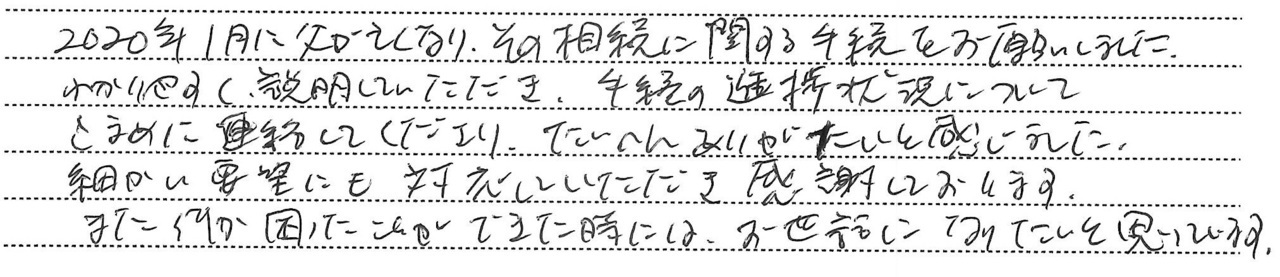 2020年1月に父が亡くなり、その相続に関する手続をお願いしました。
わかりやすく説明していただき、手続の進捗状況について
こまめに連絡してくださり、たいへんありがたいと感じました。
細かい要望にも対応していただき感謝しております。
また何か困ったことができた時には、お世話になりたいと思っています。